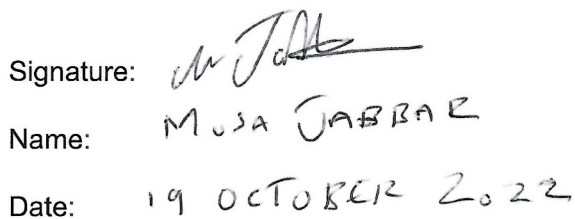 Signature: M Jabbar
Name: MUSA JABBAR
Date: 19 OCTOBER 2022